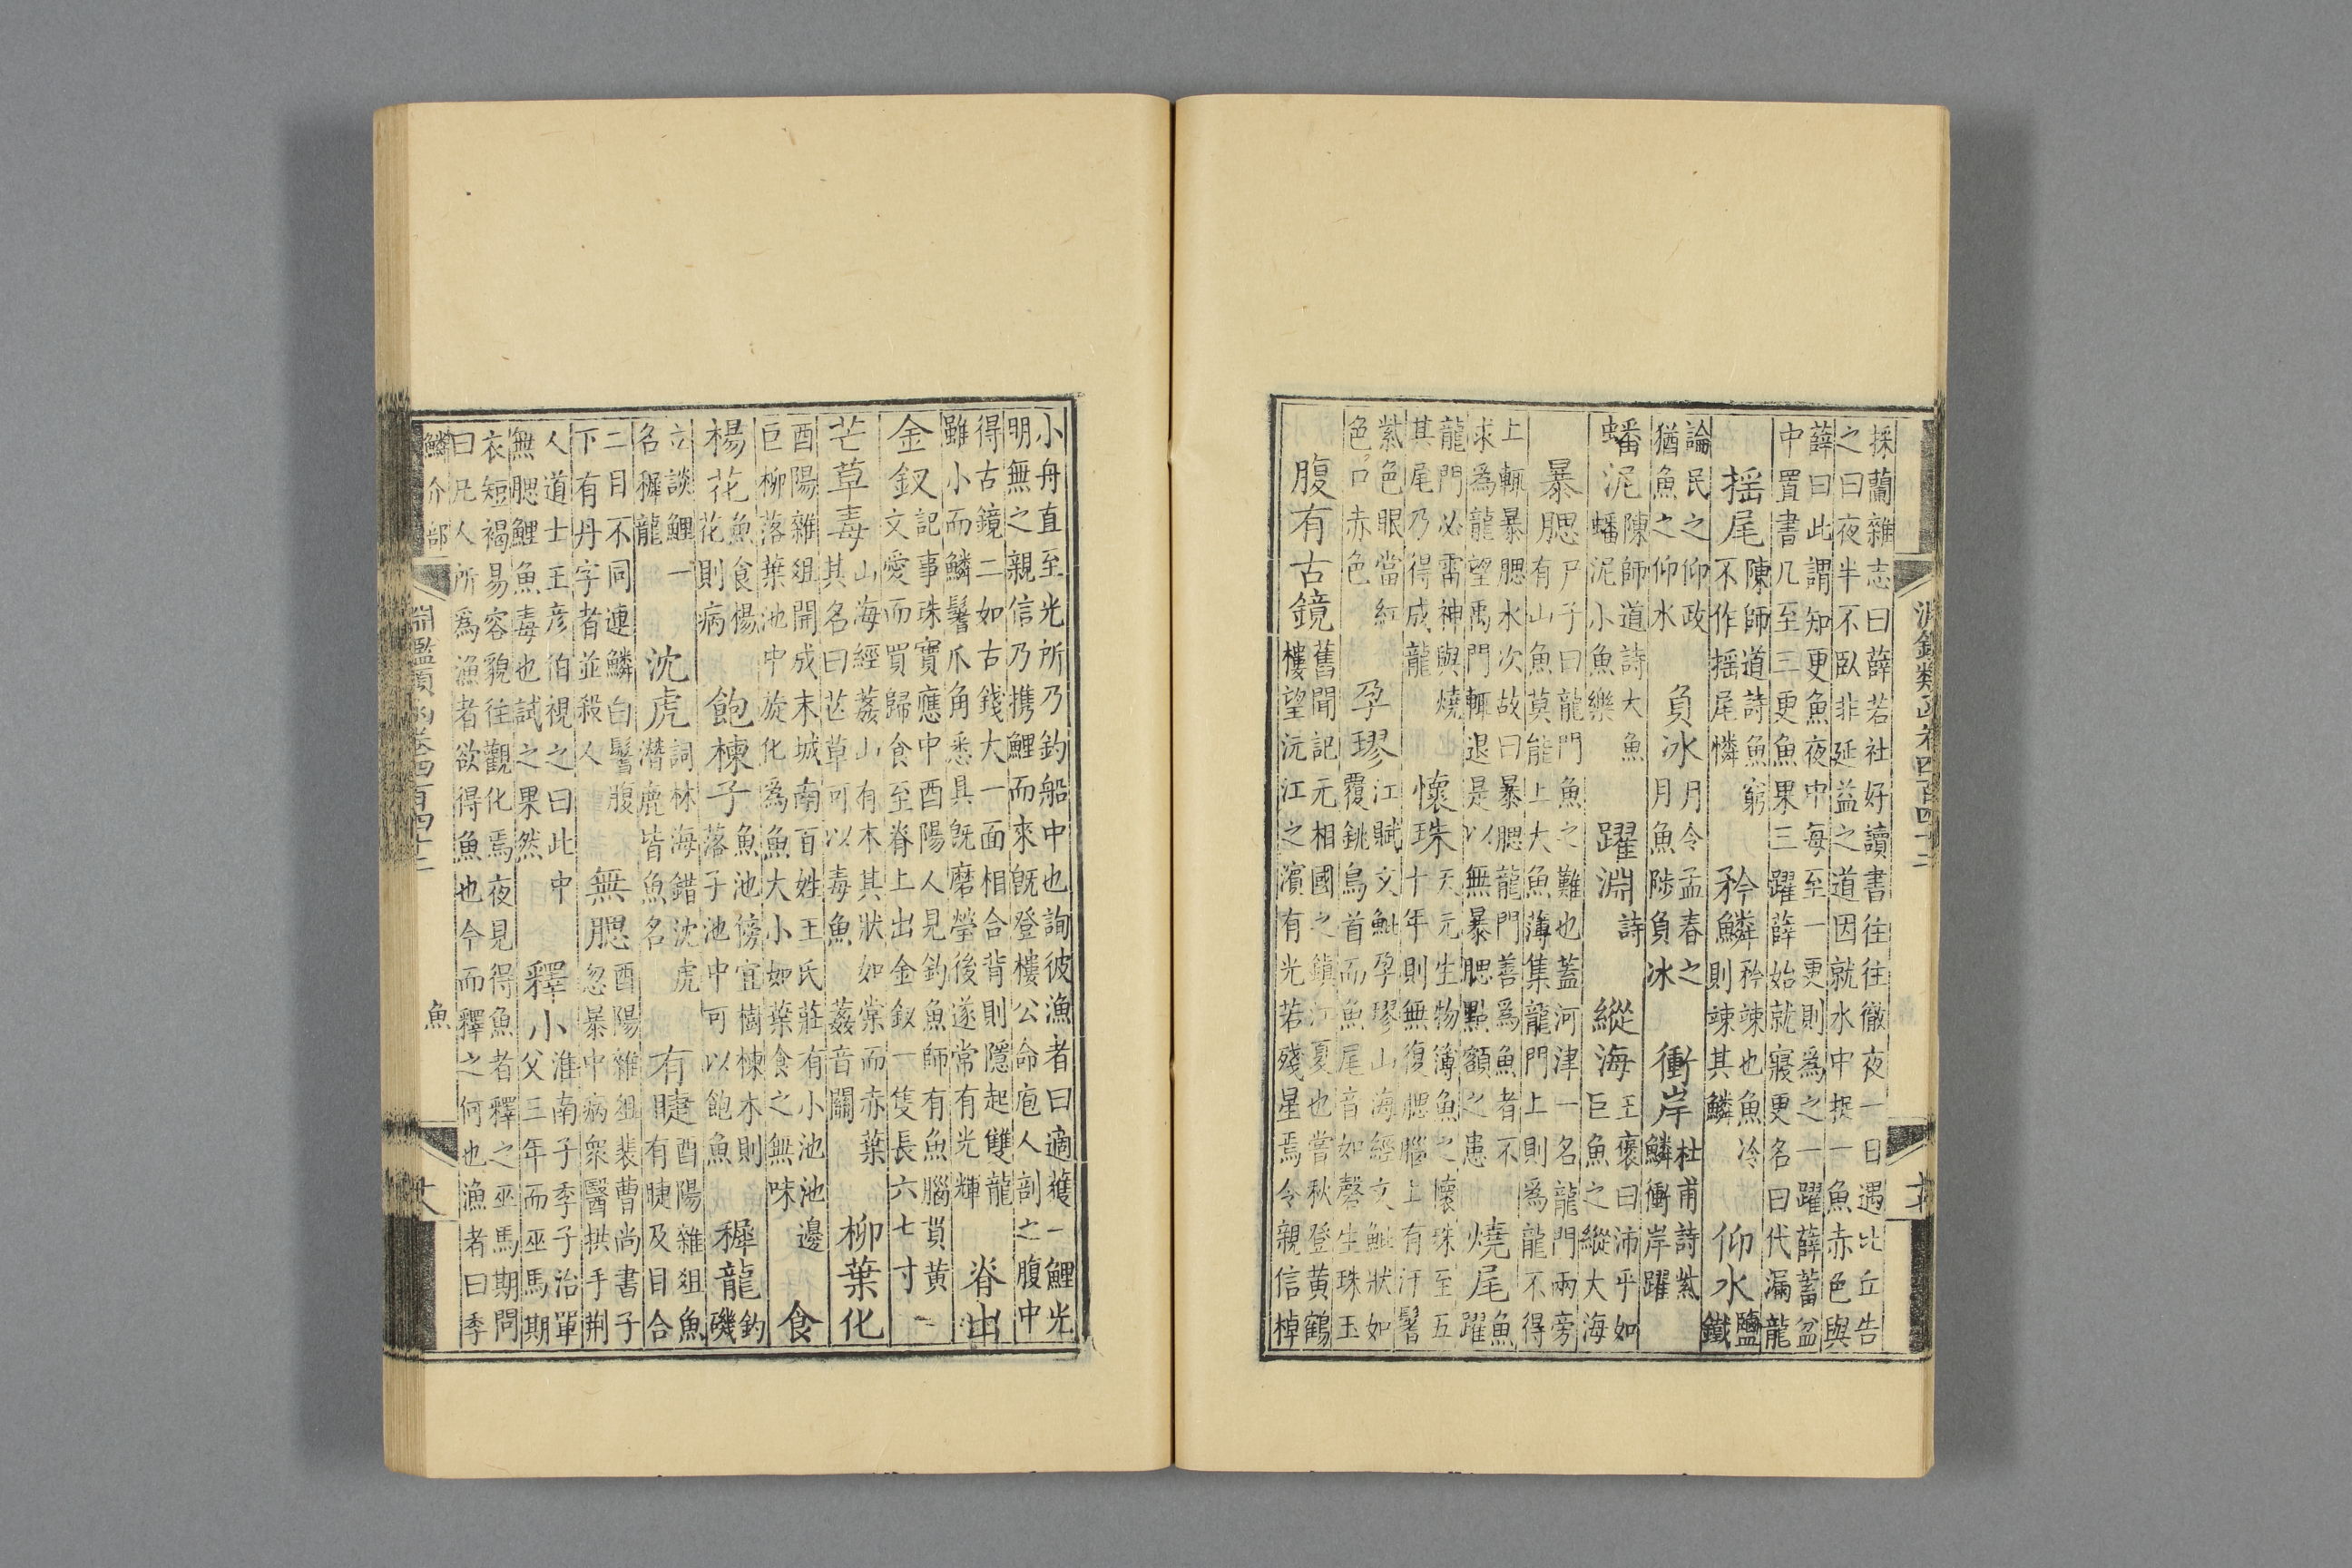 淵鑑類函卷四百四十二
採蘭雜志曰薛若社好讀書往往徹夜一日遇比丘告
之曰夜半不臥非延益之道因就水中捉一魚赤色與
薛曰此謂知更魚夜中每至一更則為之一躍薛蓄盆
中置書几至三更魚果三躍薛始就寢更名曰代漏龍
搖尾
陳師道詩魚窮
不作搖尾憐
矜鱗
矜竦也魚冷
則竦其鱗
仰水
鹽
鐵
論民之仰政
猶魚之仰水
負冰
月令孟春之
月魚陟負冰
衝岸
杜甫詩紫
鱗衝岸躍
蟠泥
陳師道詩大魚
蟠泥小魚樂
躍淵
詩
縱海
王褒曰沛乎如
巨魚之縱大海
暴腮
尸子曰龍門魚之難也蓋河津一名龍門兩旁
有山魚莫能上大魚薄集龍門上則為龍不得
上輒暴腮水次故曰暴腮龍門善為魚者不
求為龍望禹門輒退是以無暴腮點額之患
燒尾
魚
躍
龍門必雷神與燒
其尾乃得成龍
懷珠
天元生物簿魚之懷珠至五
十年則無復腮腦上有汗髻
紫色眼當紅
色口赤色
孕璆
江賦文魮孕璆山海經文魮狀如
覆銚鳥首而魚尾音如磬生珠玉
腹有古鏡
舊聞記元相國之鎮江夏也嘗秋登黃鶴
樓望沅江之濱有光若殘星焉令親信棹
小舟直至光所乃釣船中也詢彼漁者曰適獲一鯉光
明無之親信乃携鯉而來既登樓公命庖人剖之腹中
得古鏡二如古錢大一面相合背則隱起雙龍
雖小而鱗鬐爪角悉具既磨瑩後遂常有光輝
脊出
金釵
記事珠寶應中酉陽人見釣魚師有魚腦貫黃
文愛而買歸食至脊上出金釵一隻長六七寸
芒草毒
山海經葌山有木其狀如棠而赤葉
其名曰芒草可以毒魚 葌音關
柳葉化
酉陽雜俎開成末城南百姓王氏莊有小池池邊
巨柳落葉池中旋化為魚大小如葉食之無味
食
楊花
魚食楊
花則病
飽楝子
魚池傍宜樹楝木則
落子池中可以飽魚
穉龍
釣
磯
立談鯉一
名穉龍
沈虎
詞林海錯沈虎
潛鹿皆魚名
有睫
酉陽雜俎魚
有睫及目合
二目不同連鱗白鬐腹
下有丹字者並殺人
無腮
酉陽雜俎裴曹尚書子
忽暴中病眾醫拱手荆
人道士王彥伯視之曰此中
無腮鯉魚毒也試之果然
釋小
淮南子季子治單
父三年而巫馬期
衣短褐易容貌往觀化焉夜見得魚者釋之巫馬期問
曰凡人所為漁者欲得魚也今而釋之何也漁者曰季
鱗介部
淵鑑類函卷四百四十二
魚